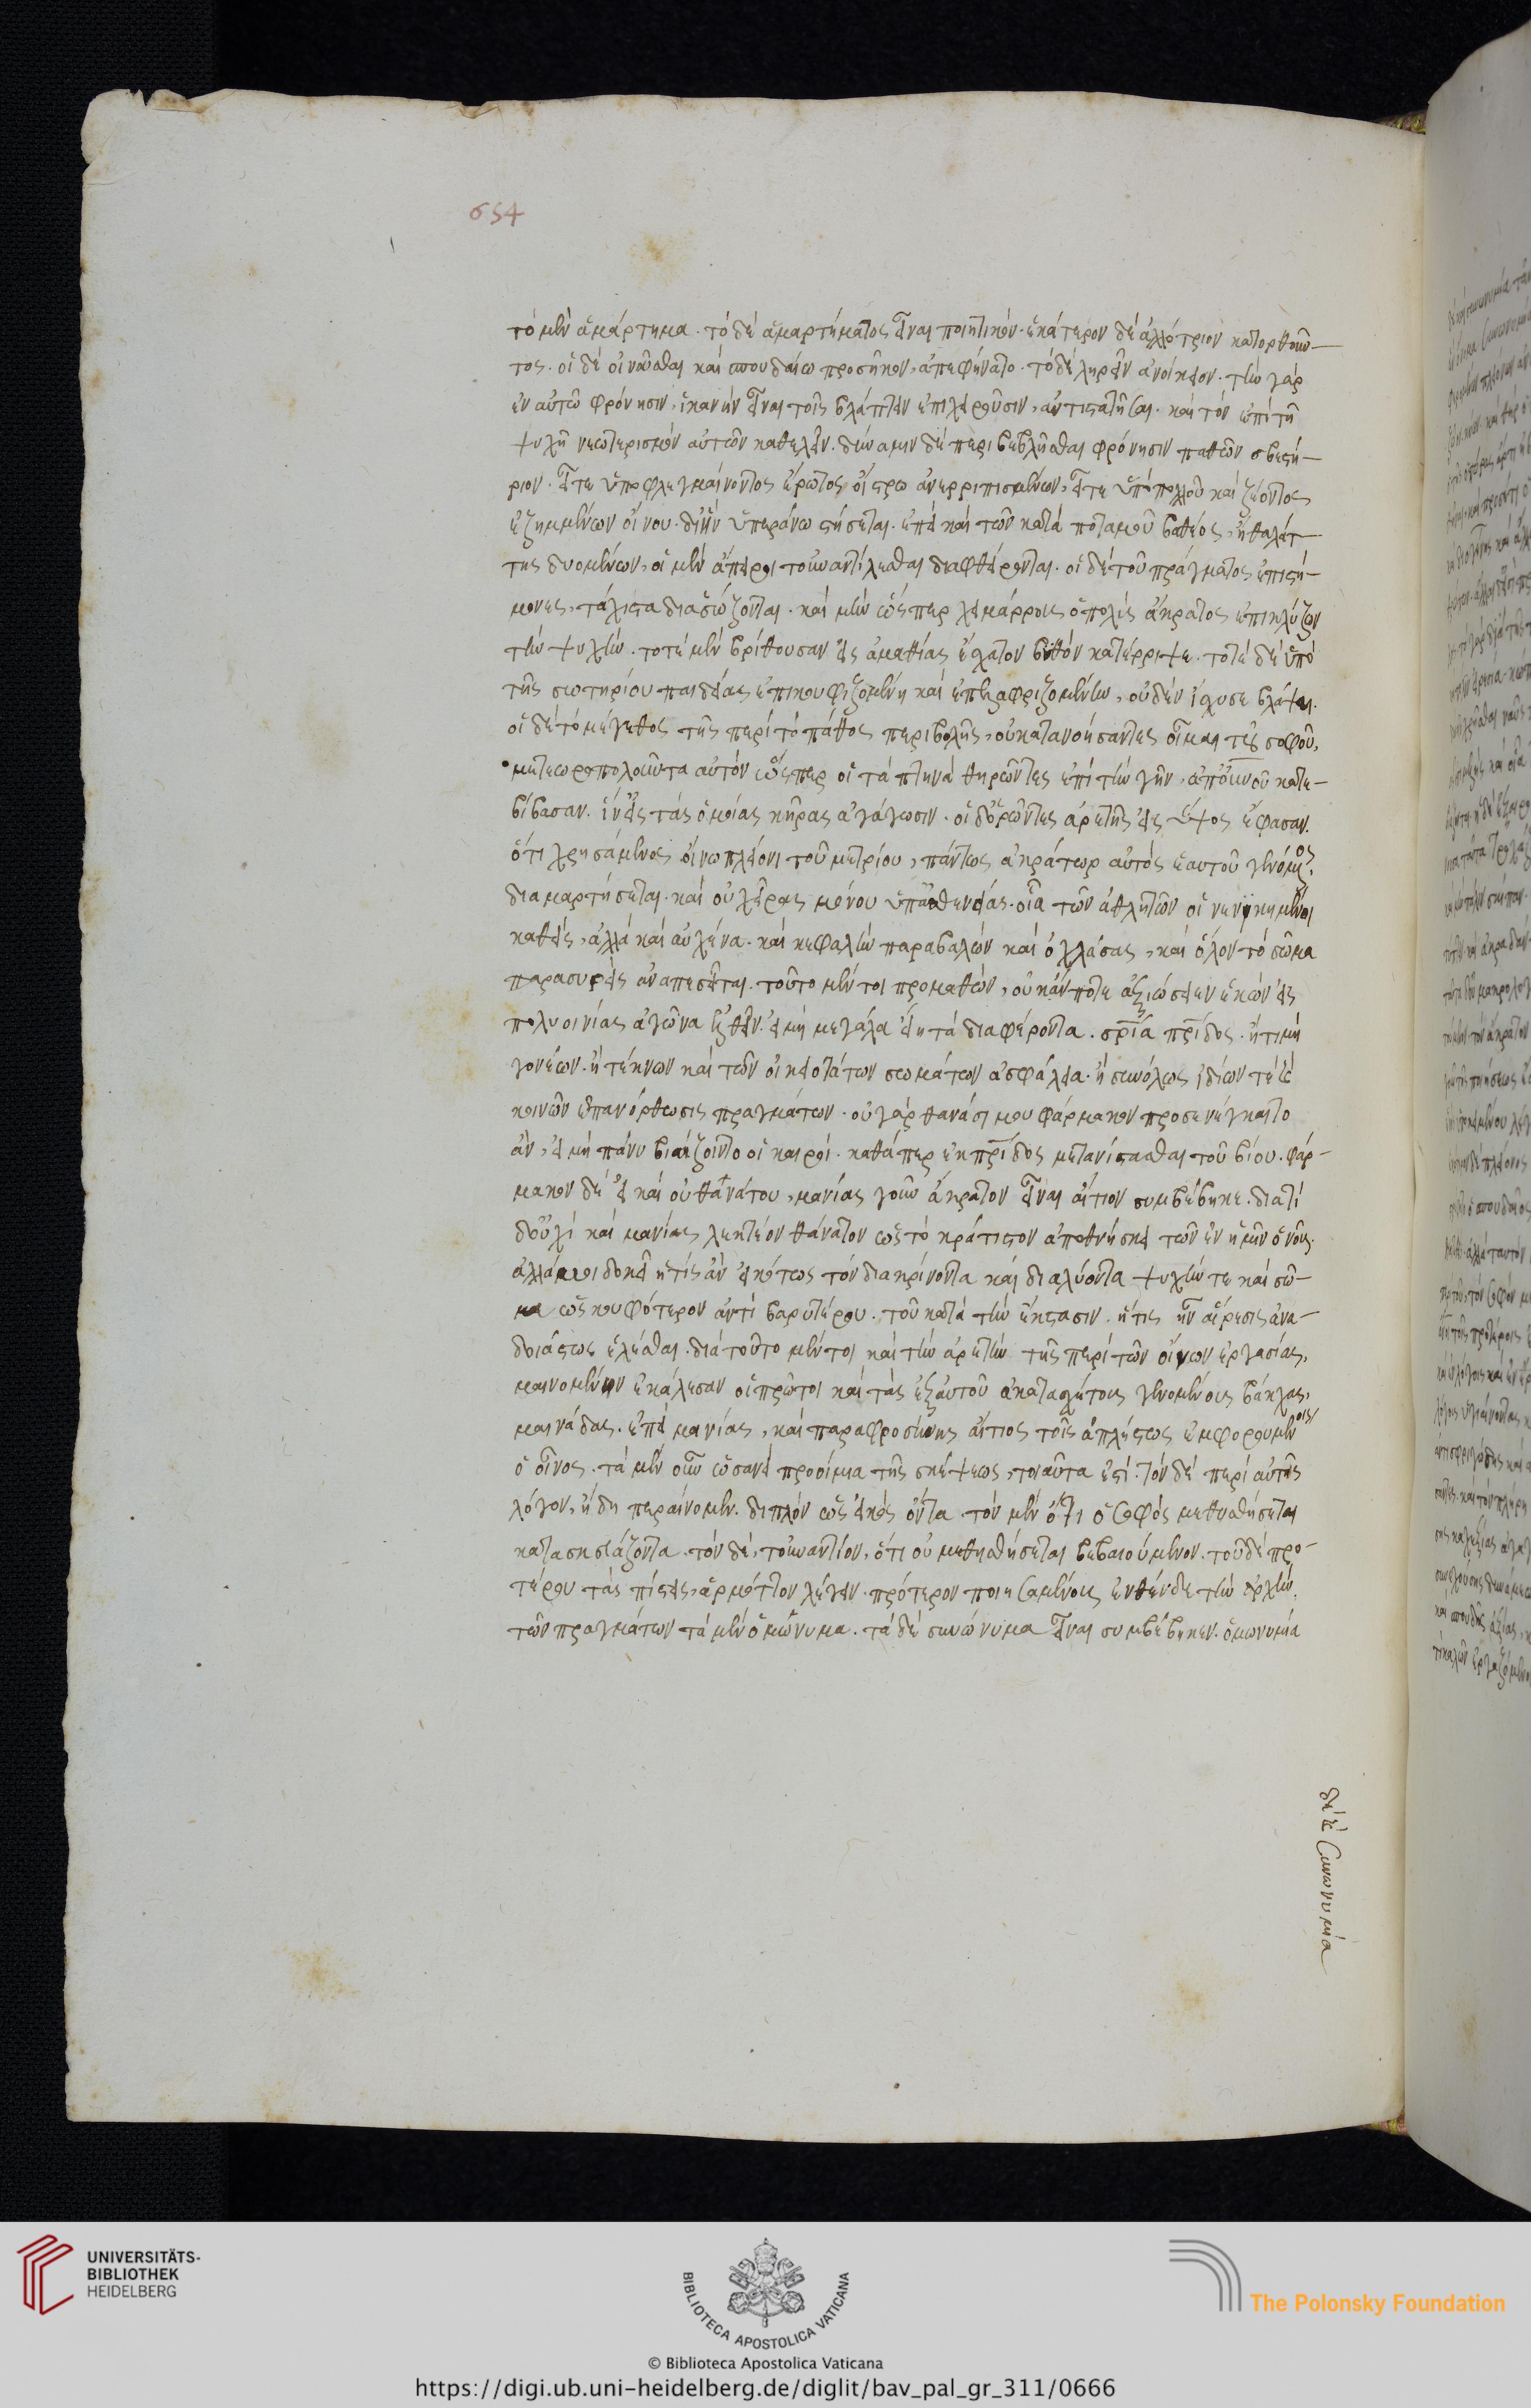 654
τὸ μὲν ἁμάρτημα. τὸ δὲ ἁμαρτήματος εἶναι ποιητικόν. ἑκάτερον δὲ ἀλλότριον κατορθοῦν-
τος. οἱ δὲ οἰνοῦσθαι καὶ σπουδαίω προσῆκον, ἀπεφήνατο. τὸ δὲ ληρεῖν ἀνοίκειον. τὴν γὰρ
ἐν αὐτῶ φρόνησιν, ἱκανὴν εἶναι τοῖς βλάπτειν ἐπιχειροῦσιν, ἀντιστατῆσαι. καὶ τὸν ἐπὶ τῆ
ψυχῆ νεωτερισμὸν αὐτῶν καθελεῖν. δύναμιν δὲ περιβεβλῆσθαι φρόνησιν παθῶν σβεστή-
ριον. εἴτε ὑπο φλεγμαίνοντος ἔρωτος οἴστρω ἀνερριπισμένων, εἴτε ὑπὸ πολλοῦ καὶ ζέοντος
ἐξημμένων οἴνου. δι' ἣν ὑπεράνω στήσεται. ἐπεὶ καὶ τῶν κατὰ ποταμοῦ βαθέος, ἢ θαλάτ-
της δυομένων, οἱ μὲν ἄπειροι τοῦ ἀντέχεσθαι διαφθείρονται. οἱ δὲ τοῦ πράγματος ἐπιστή-
μονες, τάχιστα διασώζονται. καὶ μὴν ὥσπερ χειμάρρους ὁ πολὺς ἄκρατος ἐπικλύζων
τὴν ψυχὴν. τοτὲ μὲν βρίθουσαν εἰς ἀμαθίας ἔσχατον βυθὸν κατέρριψε. τοτὲ δὲ ὑπὸ
τῆς σωτηρίου παιδείας ἐπικουφιζομένη καὶ ἐπελαφριζομένην, οὐδὲν ἴσχυσε βλάψαι.
οἱ δὲ τὸ μέγεθος τῆς περὶ τὸ πάθος περιβολῆς, οὐ κατανοήσαντες οἶμαι τοῦ σοφοῦ,
μετεωροπολοῦντα αὐτὸν ὥσπερ οἱ τὰ πτηνὰ θηρῶντες ἐπὶ τὴν γῆν, ἀπὸ οὐνοῦ κατε-
βίβασαν. ἵν' εἰς τὰς ὁμοίας κῆρας ἀγάγωσιν. οἱ δ' ὁρῶντες ἀρετῆς εἰς ὕψος ἔφασαν.
ὅτι χρησάμενος οἴνω πλείονι τοῦ μετρίου, πάντως ἀκράτωρ αὐτὸς ἑαυτοῦ γενόμενος
διαμαρτήσεται. καὶ οὐ χεῖρας μόνου ὑπ' ἀσθενείας. οἷα τῶν ἀθλητῶν οἱ νενικημένοι
καθεὶς, ἀλλὰ καὶ αὐχένα. καὶ κεφαλὴν παραβαλὼν καὶ ὀκλάσας, καὶ ὅλον τὸ σῶμα
παρασυρεὶς ἀναπεσεῖται. τοῦτο μέντοι προμαθὼν, οὐκ ἄν ποτε ἀξιώσειεν ἑκὼν εἰς
πολυοινίας ἀγῶνα ἐλθεῖν. εἰ μὴ μεγάλα εἴη τὰ διαφέροντα. σρία πρίδος. ἢ τιμὴ
γονέων. ἢ τέκνων καὶ τῶν οἰκειοτάτων σωμάτων ἀσφάλεια. ἢ συνόλως ἰδίων τὲ καὶ
κοινῶν ἐπανόρθωσις πραγμάτων. οὐ γὰρ θανάσιμου φάρμακον προσενέγκαιτο
ἂν, εἰ μὴ πάνυ βιάζοιντο οἱ καιροί. καθάπερ ἐκ πρίδος μετανίστασθαι τοῦ βίου. φάρ-
μακον δὲ εἰ καὶ οὐ θανάτου, μανίας γοῦν ἄκρατον εἶναι αἴτιον συμβέβηκε. διατί
δ' οὐχὶ καὶ μανίας λεκτέον θάνατον ὡς τὸ κράτιστον ἀποθνήσκει τῶν ἐν ἡμῖν ὁ νοῦς.
ἀλλά μοι δοκεῖ ἥ τις ἂν εἰκότως τὸν διακρίνοντα καὶ διαλύοντα ψυχήν τε καὶ σῶ-
μα ὡς κουφότερον ἀντὶ βαρυτέρου. τοῦ κατὰ τὴν ἔκστασιν. ἥτις ἦν αἵρεσις ἀνα-
δοιάστως ἑλέσθαι. διὰ τοῦτο μέντοι καὶ τὴν ἀρετὴν τῆς περὶ τῶν οἴνων ἐργασίας,
μαινομένην ἐκάλεσαν οἱ πρῶτοι καὶ τὰς ἐξ αὐτοῦ ἀκατασχέτους γενομένους βάκχας,
μαινάδας. ἐπεὶ μανίας, καὶ παραφροσύνης αἴτιος τοῖς ἀπλήστως ἐμφορουμένοις
ὁ οἶνος. τὰ μὲν οὖν ὡσανεὶ προοίμια τῆς σκέψεως, τοιαῦτα ἐστί. τὸν δὲ περὶ αὐτῆς
λόγον, ἤδη περαίνομεν. διπλὸν ὡς εἰκὸς ὄντα. τὸν μὲν ὅτι ὁ σοφὸς μεθυσθήσεται
κατασκευάζοντα. τὸν δὲ, τοὐναντίον, ὅτι οὐ μεθυσθήσεται βεβαιούμενον. τοῦ δὲ προ-
τέρου τὰς πίστεις, ἁρμόττον λέγειν. πρότερον ποιησαμένους ἐνθένδε τὴν ἀρχὴν.
τῶν πραγμάτων τὰ μὲν ὁμώνυμα. τὰ δὲ συνώνυμα εἶναι συμβέβηκεν. ὁμωνυμία
δὲ καὶ συνωνυμία
UNIVERSITÄTS-
BIBLIOTHEK
HEIDELBERG
BIBLIOTECA APOSTOLICA VATICANA
The Polonsky Foundation
© Biblioteca Apostolica Vaticana
https://digi.ub.uni-heidelberg.de/diglit/bav_pal_gr_311/0666